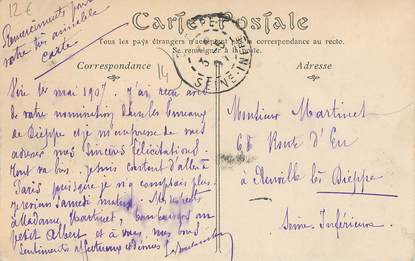 12 €
Remerciements pour
votre très aimable
carte
Carte Postale
Tous les pays étrangers n'acceptent pas la correspondance au recto.
Se renseigner à la poste.
Correspondance
Adresse
14
DIEPPE
SEINE-INFRE
1er mai 1907. J'ai reçu avis
de votre nomination dans les bureaux
de Dieppe et je m'empresse de vous
adresser nos sincères félicitations.
Tout va bien. Je suis content d'aller à
Paris puisque je n'y comptais plus.
Je reviens Samedi matin. Mes respects
à Madame Martinet, bons baisers au
petit Albert et à vous mes bons
Sentiments affectueux et dévoués
Monsieur Martinet
64 Route d'Eu
à Neuville lès Dieppe
Seine Inférieure